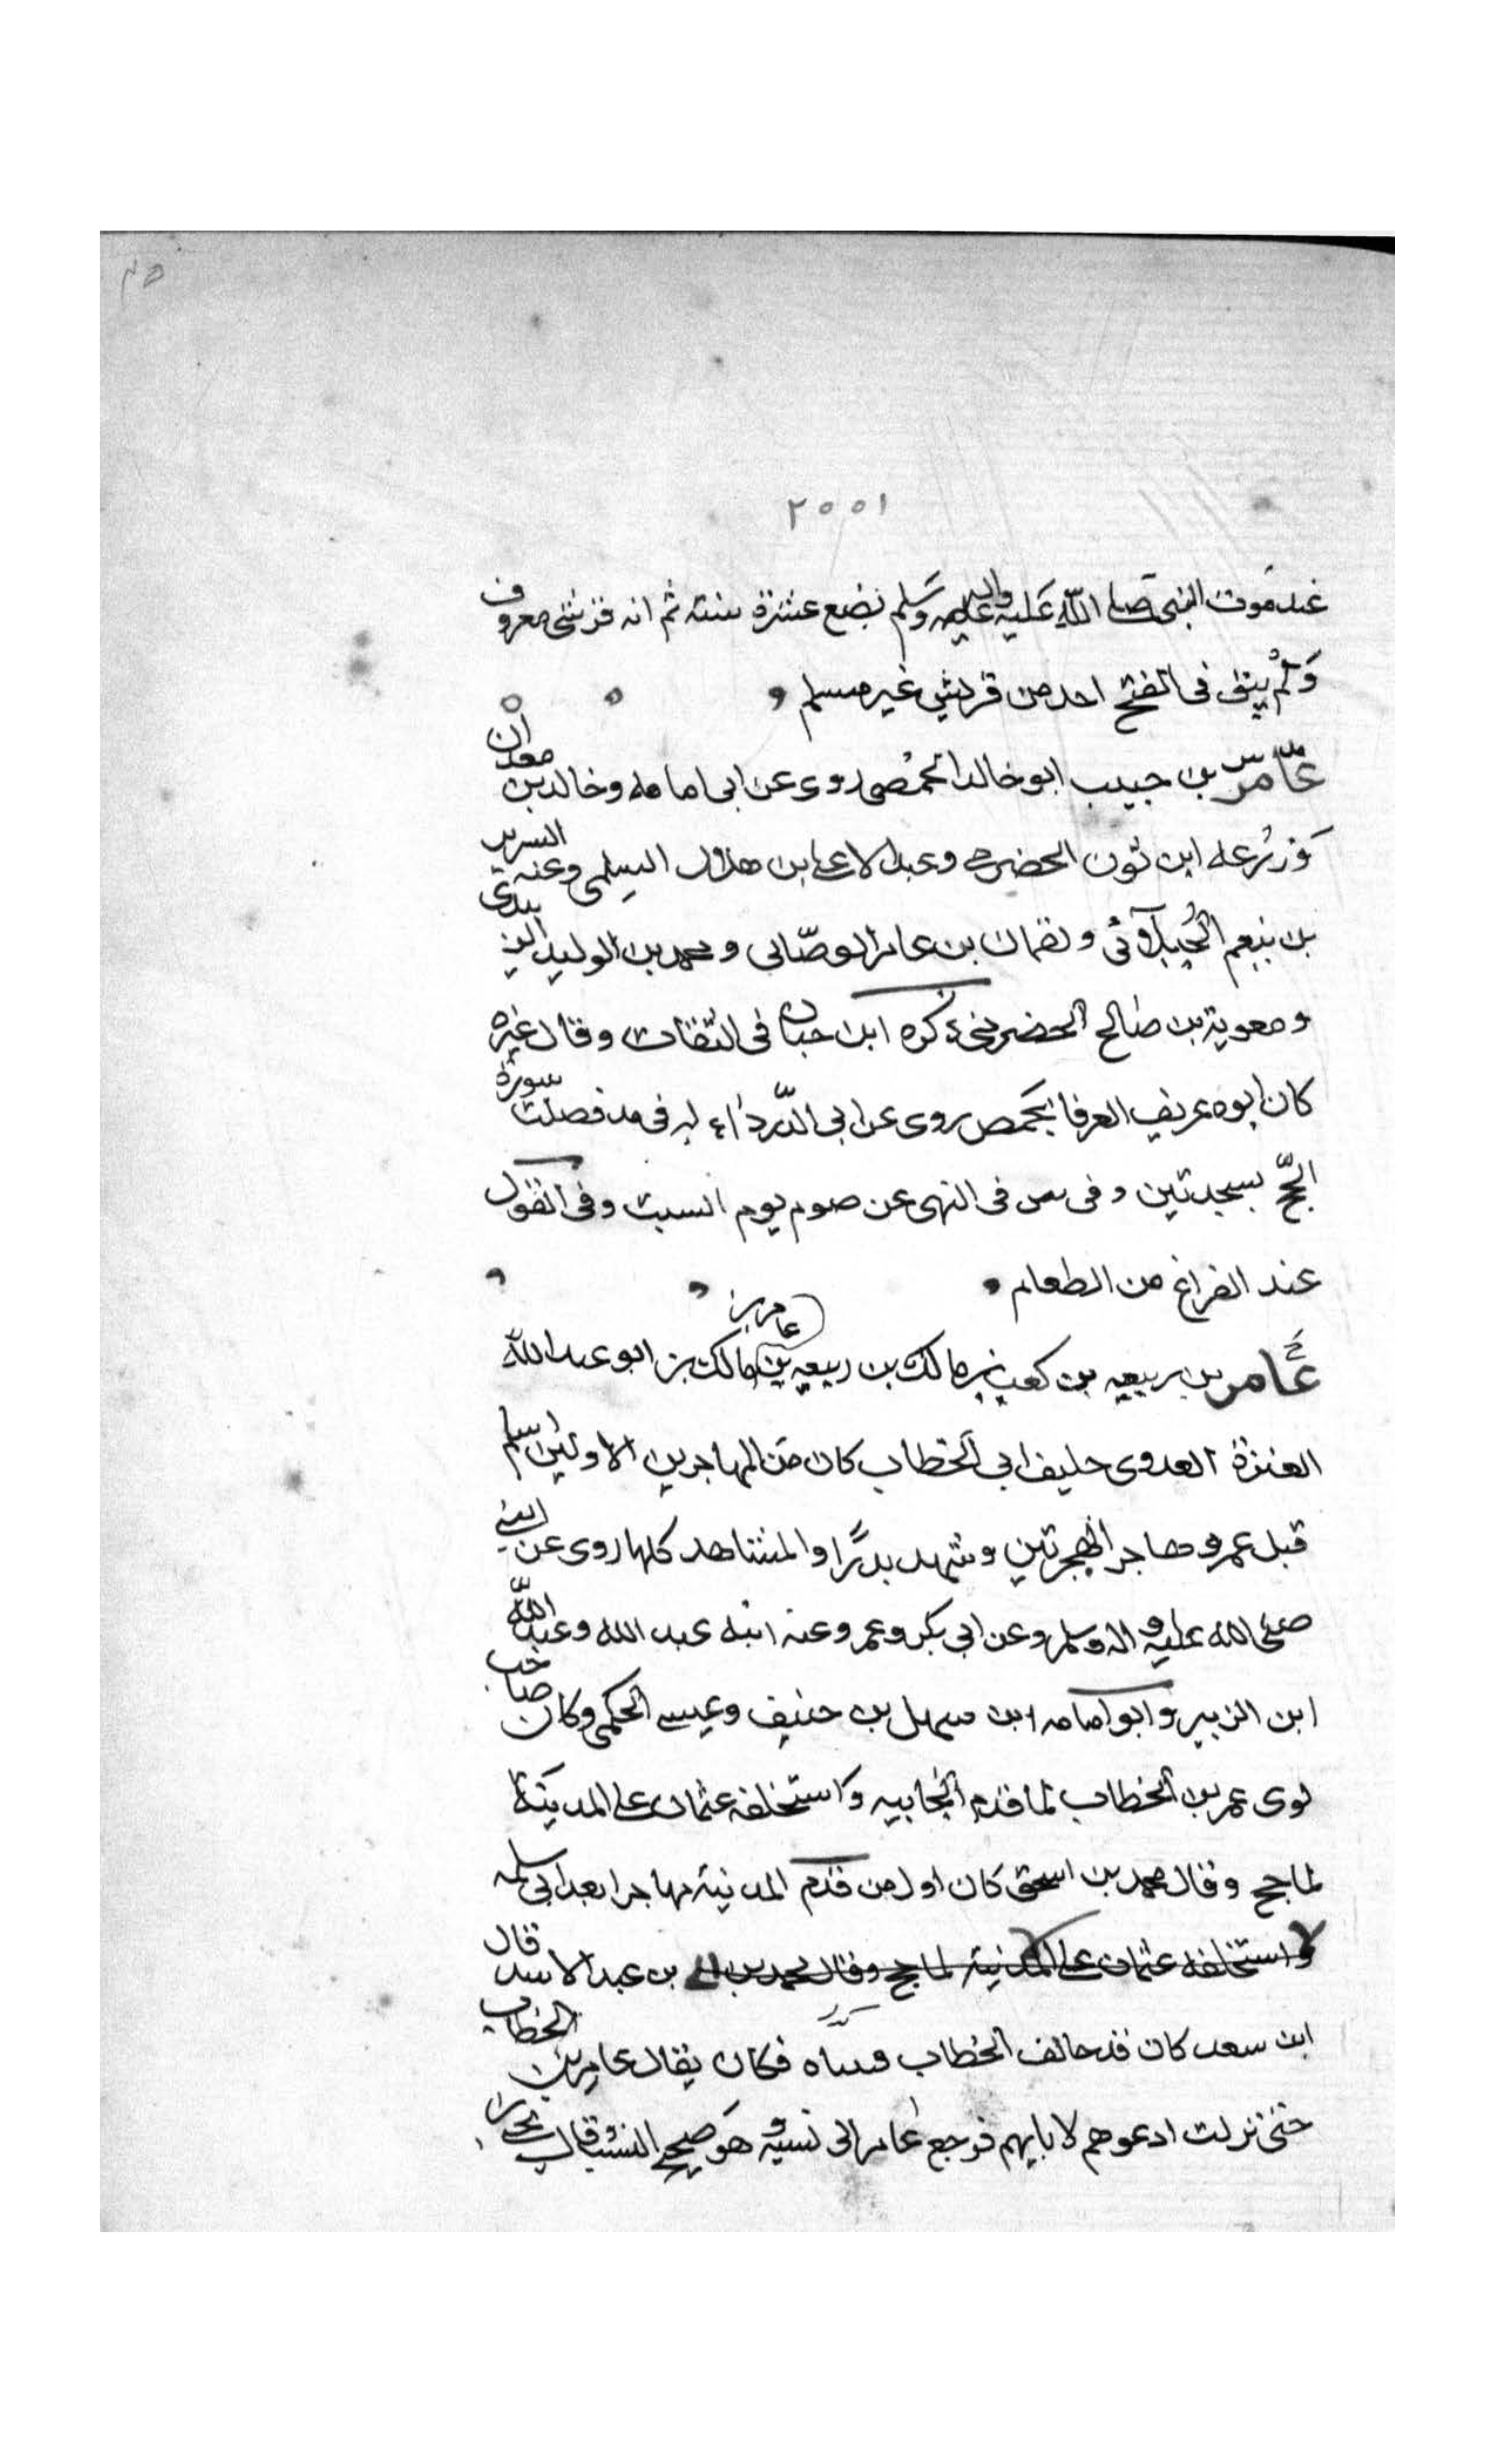 ٢٥
٢٠٠١
عند موت النبى صلى الله عليه واله وسلم بضع عشرة سنة ثم انه قرشى معروف
ولم يبق فى الفتح احد من قريش غير مسلم
عامر بن جيب ابو خالد الحمصى روى عن ابى امامه وخالد بن معدان
وزرعه ابن ثوب الحضرمى وعبد الاعلى بن هلال السلمى وعنه السرى
بن ينعم الجبلانى ولقمان بن عامر الوصابى ومحمد بن الوليد الزبيدى
ومعوية بن صالح الحضرمى ذكره ابن حبان فى الثقات وقال غيره
كان ابوه عريف العرفا بحمص روى عن ابى الدرداء له فى مد فصلت سورة
الحج بسجدتين وفى س فى النهى عن صوم يوم السبت وفى القول
عند الفراغ من الطعام
عامر بن ربيعه بن كعب بن مالك بن ربيعه بن عامر بن مالك بن ابو عبد الله
العنزة العدوى حليف ابى الخطاب كان من المهاجرين الاولين اسلم
قبل عمر وهاجر الهجرتين وشهد بدرا والمشاهد كلها روى عن النبى
صلى الله عليه واله وسلم وعن ابى بكر وعمر وعنه ابنه عبد الله وعبد الله
ابن الزبير وابو امامه ابن سهل بن حنيف وعيسى الحكمى وكان صاحب
لوى عمر بن الخطاب لما قدم الجابيه واستخلفه عثمان على المدينة
لما حج وقال محمد بن اسحق كان اول من قدم المدينة مهاجرا بعد ابى سلمه
واستخلفه عثمان على المدينة لما حج وقال محمد بن بن عبد الاسد قال
ابن سعد كان قد حالف الخطاب فتبناه فكان يقال عامر بن الخطاب
حتى نزلت ادعوهم لابايهم فرجع عامر الى نسبه وهو صحيح النسب وقال